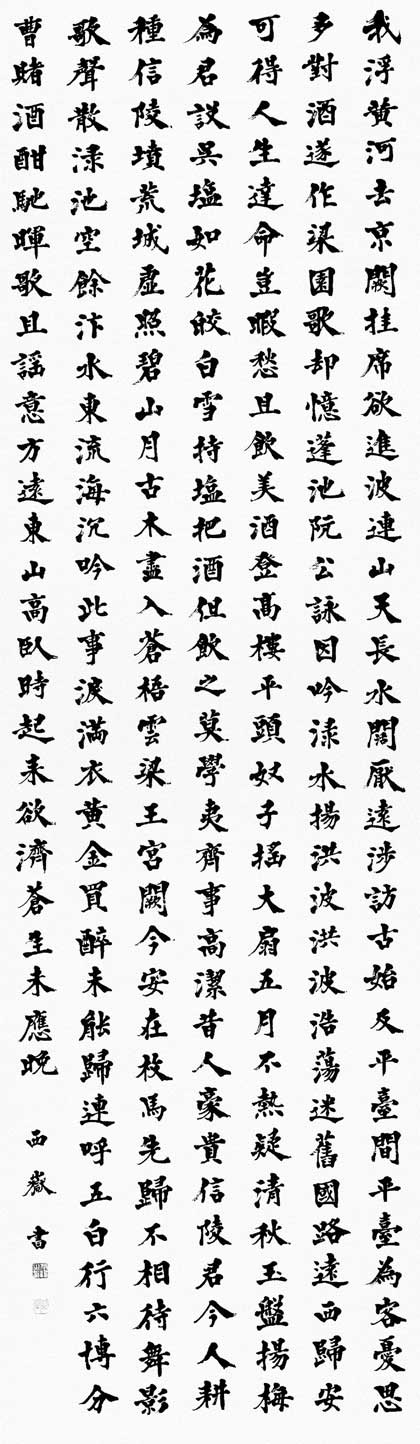 我浮黃河去京闕挂席欲進波連山天長水闊厭遠涉訪古始及平臺間平臺為客憂思
多對酒遂作梁園歌却憶蓬池阮公詠因吟淥水揚洪波洪波浩蕩迷舊國路遠西歸安
可得人生達命豈暇愁且飲美酒登高樓平頭奴子搖大扇五月不熱疑清秋玉盤揚梅
為君設吳塩如花皎白雪持塩把酒但飲之莫學夷齊事高潔昔人豪貴信陵君今人耕
種信陵墳荒城虛照碧山月古木盡入蒼梧雲梁王宮闕今安在枚馬先歸不相待舞影
歌聲散淥池空餘汴水東流海沉吟此事淚滿衣黃金買醉未能歸連呼五白行六博分
曹賭酒酣馳暉歌且謠意方遠東山高臥時起来欲濟蒼生未應晚
西嶽書